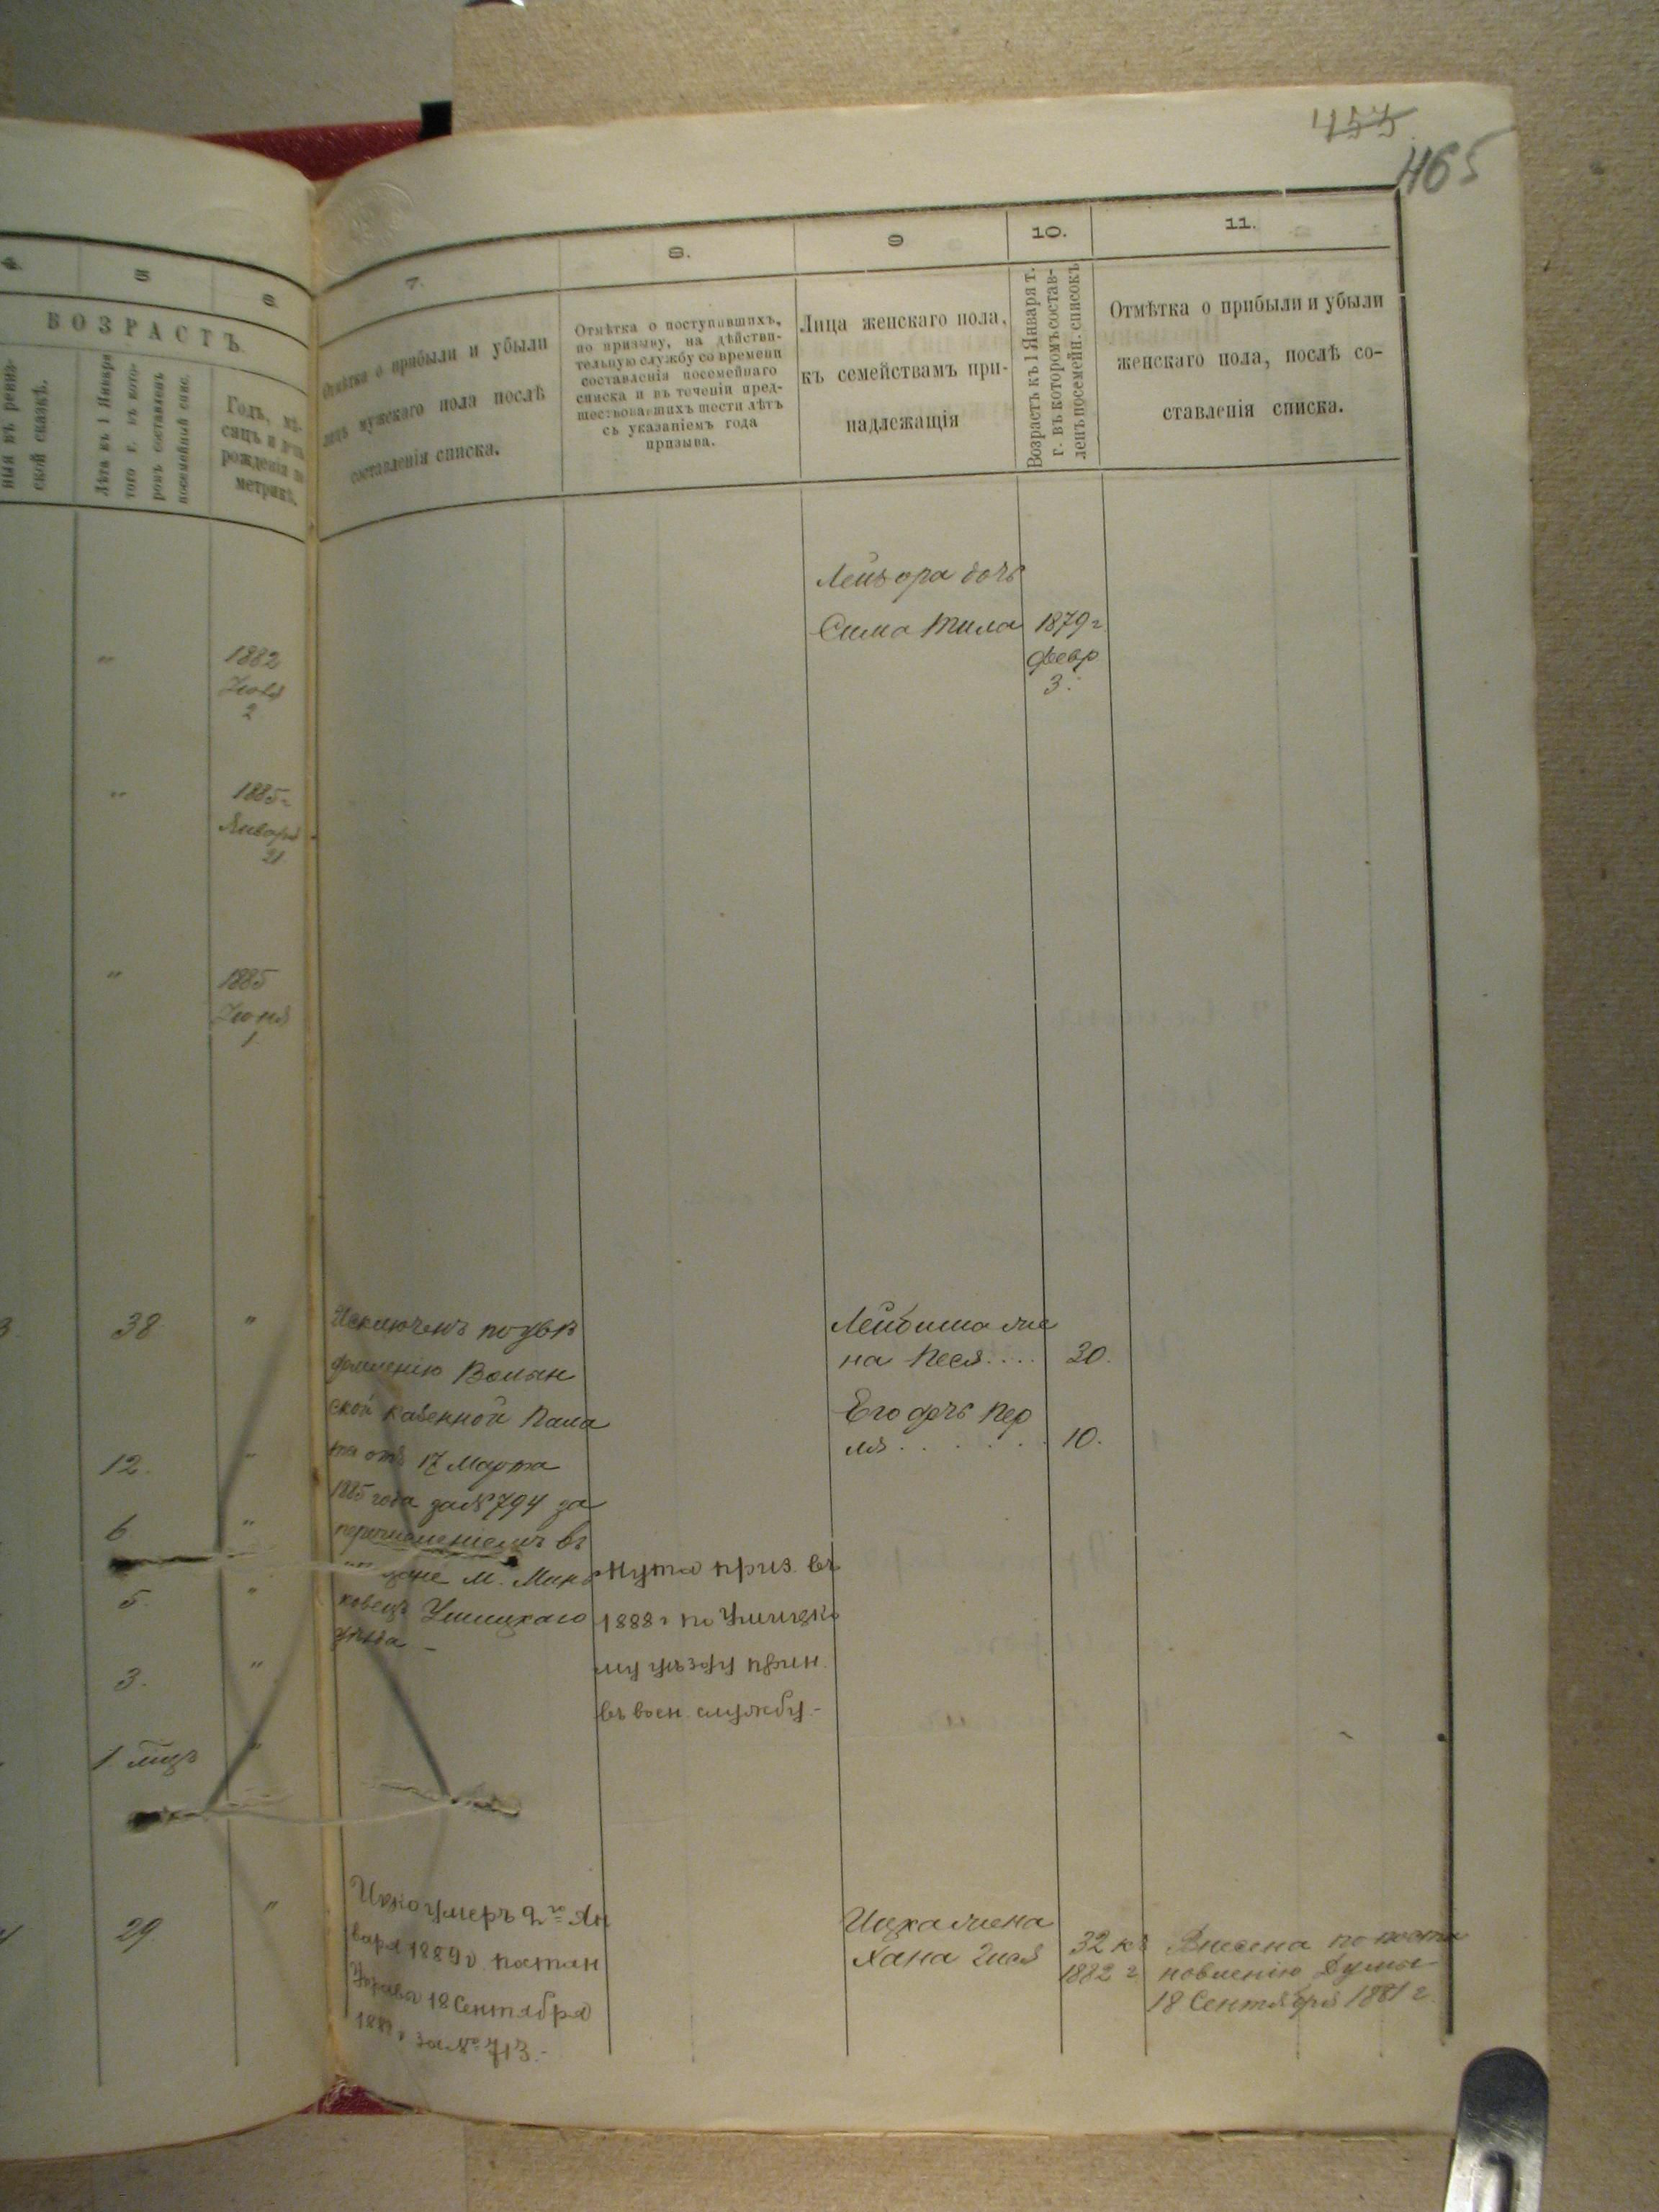 455
465
4.
5
6
7.
8.
9
10.
11.
ВОЗРАСТЪ.
ской сказкѣ.
Лѣта къ 1 Января
того г. въ кото-
ромъ составленъ
посемейный спис.
Годъ, мѣ-
сяцъ и день
рожденія по
метрикѣ.
Отмѣтка о прибыли и убыли
лицъ мужскаго пола послѣ
составленія списка.
Отмѣтка о поступившихъ,
по призыву, на дѣйстви-
тельную службу со времени
составленія посемейнаго
списка и въ теченіи пред-
шествовавшихъ шести лѣтъ
съ указаніемъ года
призыва.
Лица женскаго пола,
къ семействамъ при-
надлежащія
Возрастъ къ 1 Января т.
г. въ которомъ состав-
ленъ посемейн. списокъ
Отмѣтка о прибыли и убыли
женскаго пола, послѣ со-
ставленія списка.
Лейзора дочь
Сима Тила 1879 г.
Февр
3.
" 1882
Іюля
2
" 1885 г
Января
21
" 1885
Іюня
1
38 "
12. "
6 "
5. "
3. "
1 мѣс "
29 "
Исключенъ по увѣ
домленію Волын
ской казенной Пала
ты отъ 17 Марта
1885 года за № 794 за
перечисленіемъ въ
М. Мин
ковецъ Ушицкаго
уѣзда -
Нута приз. въ
1888 г по Ушицко
му уѣзду прин.
въ воен. службу.-
Лейбиша же
на Песя.... 30.
Его дочь Пер
ля....... 10.
Ицко умеръ 2го Ян
варя 1889 г. постан
Управы 18 Сентября
за № 713.-
Ицка жена
Хана 32 къ
1882 г
Внесена по поста
новленію Думы
18 Сентября 1881 г.